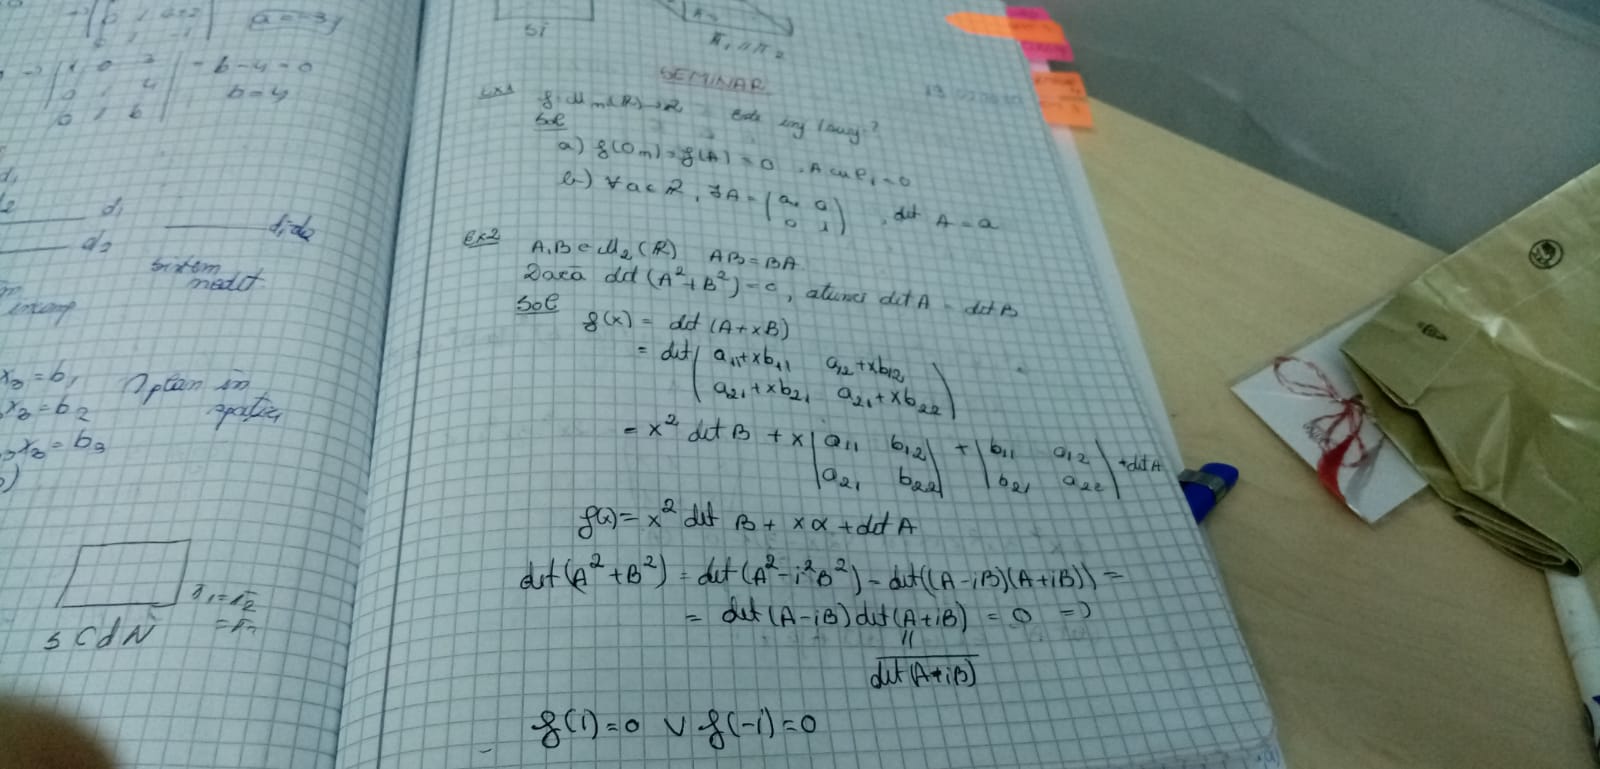 a=-3
1 0 3
0 1 4
0 1 b
= b-4=0
b=4
d1
d2
d1=d2
sistem
nedet
incomp
x3=b1
x3=b2
x3=b3
plan in
spatiu
π1=π2
=π3
SCdN
SI
π1 || π2
SEMINAR
Ex1 f: Mn(R)→R Este inj/surj?
Sol
a) f(On)=f(A)=0, A cu l1=0
b) ∀a∈R, ∃A=(a 0
0 1), det A=a
Ex2 A,B∈M2(R) AB=BA
Dacă det(A²+B²)=0, atunci det A = det B
Sol
f(x) = det(A+xB)
= det(a11+xb11 a12+xb12
a21+xb21 a21+xb22)
= x² det B + x |a11 b12| + |b11 a12| + det A
|a21 b22| |b21 a22|
f(x)= x² det B + xα + det A
det(A²+B²) = det(A²-i²B²) = det((A-iB)(A+iB)) =
= det(A-iB)det(A+iB) = 0 =>
||
det(A+iB)
f(i)=0 ∨ f(-i)=0